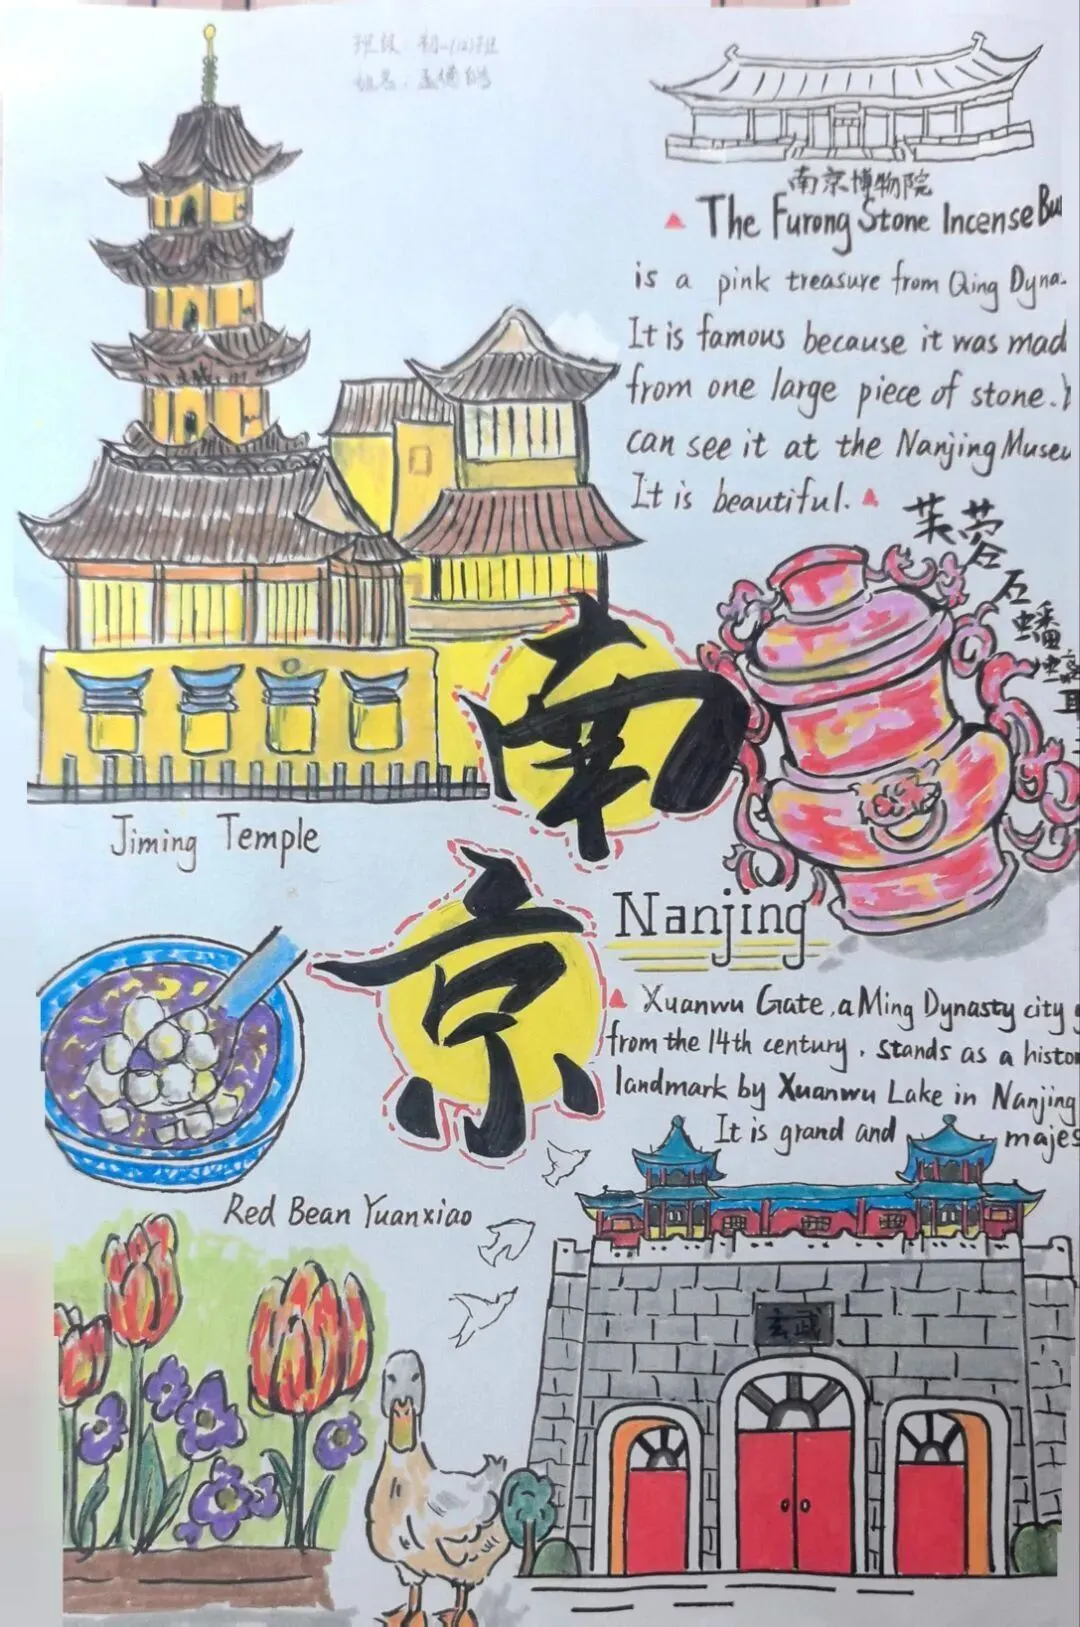 班级:初一(12)班
姓名:孟
南京博物院
The Furong Stone Incense Bu
is a pink treasure from Qing Dyna-
It is famous because it was mad
from one large piece of stone.
can see it at the Nanjing Museu
It is beautiful.
芙蓉
石
蟠
南
京
Jiming Temple
Nanjing
Xuanwu Gate, a Ming Dynasty city
from the 14th century, stands as a histo
landmark by Xuanwu Lake in Nanjing
It is grand and majes
Red Bean Yuanxiao
玄武